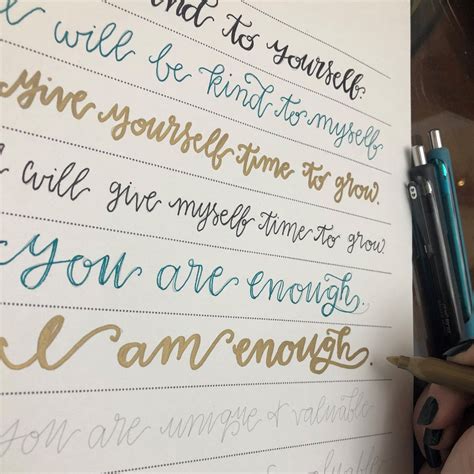 kind to yourself.
I will be kind to myself
Give yourself time to grow.
I will give myself time to grow.
You are enough.
I am enough.
you are unique & valuable